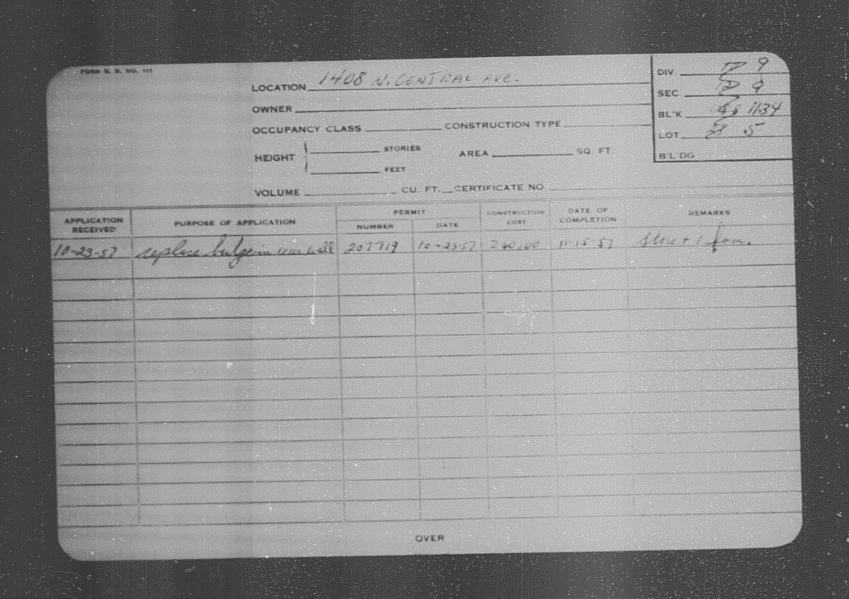 FORM B. B. NO. 111
LOCATION 1408 N. CENTRAL AVE.
DIV 9
OWNER
SEC 9
OCCUPANCY CLASS CONSTRUCTION TYPE
BL'K 1134
LOT 5
HEIGHT STORIES FEET AREA SQ. FT.
B'L'DG
VOLUME CU. FT. CERTIFICATE NO.
APPLICATION RECEIVED PURPOSE OF APPLICATION PERMIT NUMBER DATE CONSTRUCTION COST DATE OF COMPLETION REMARKS
10-23-57 replace bulge in rear wall 207719 10-23-57 260.00 11-15-57 Store + 1 fam.
OVER